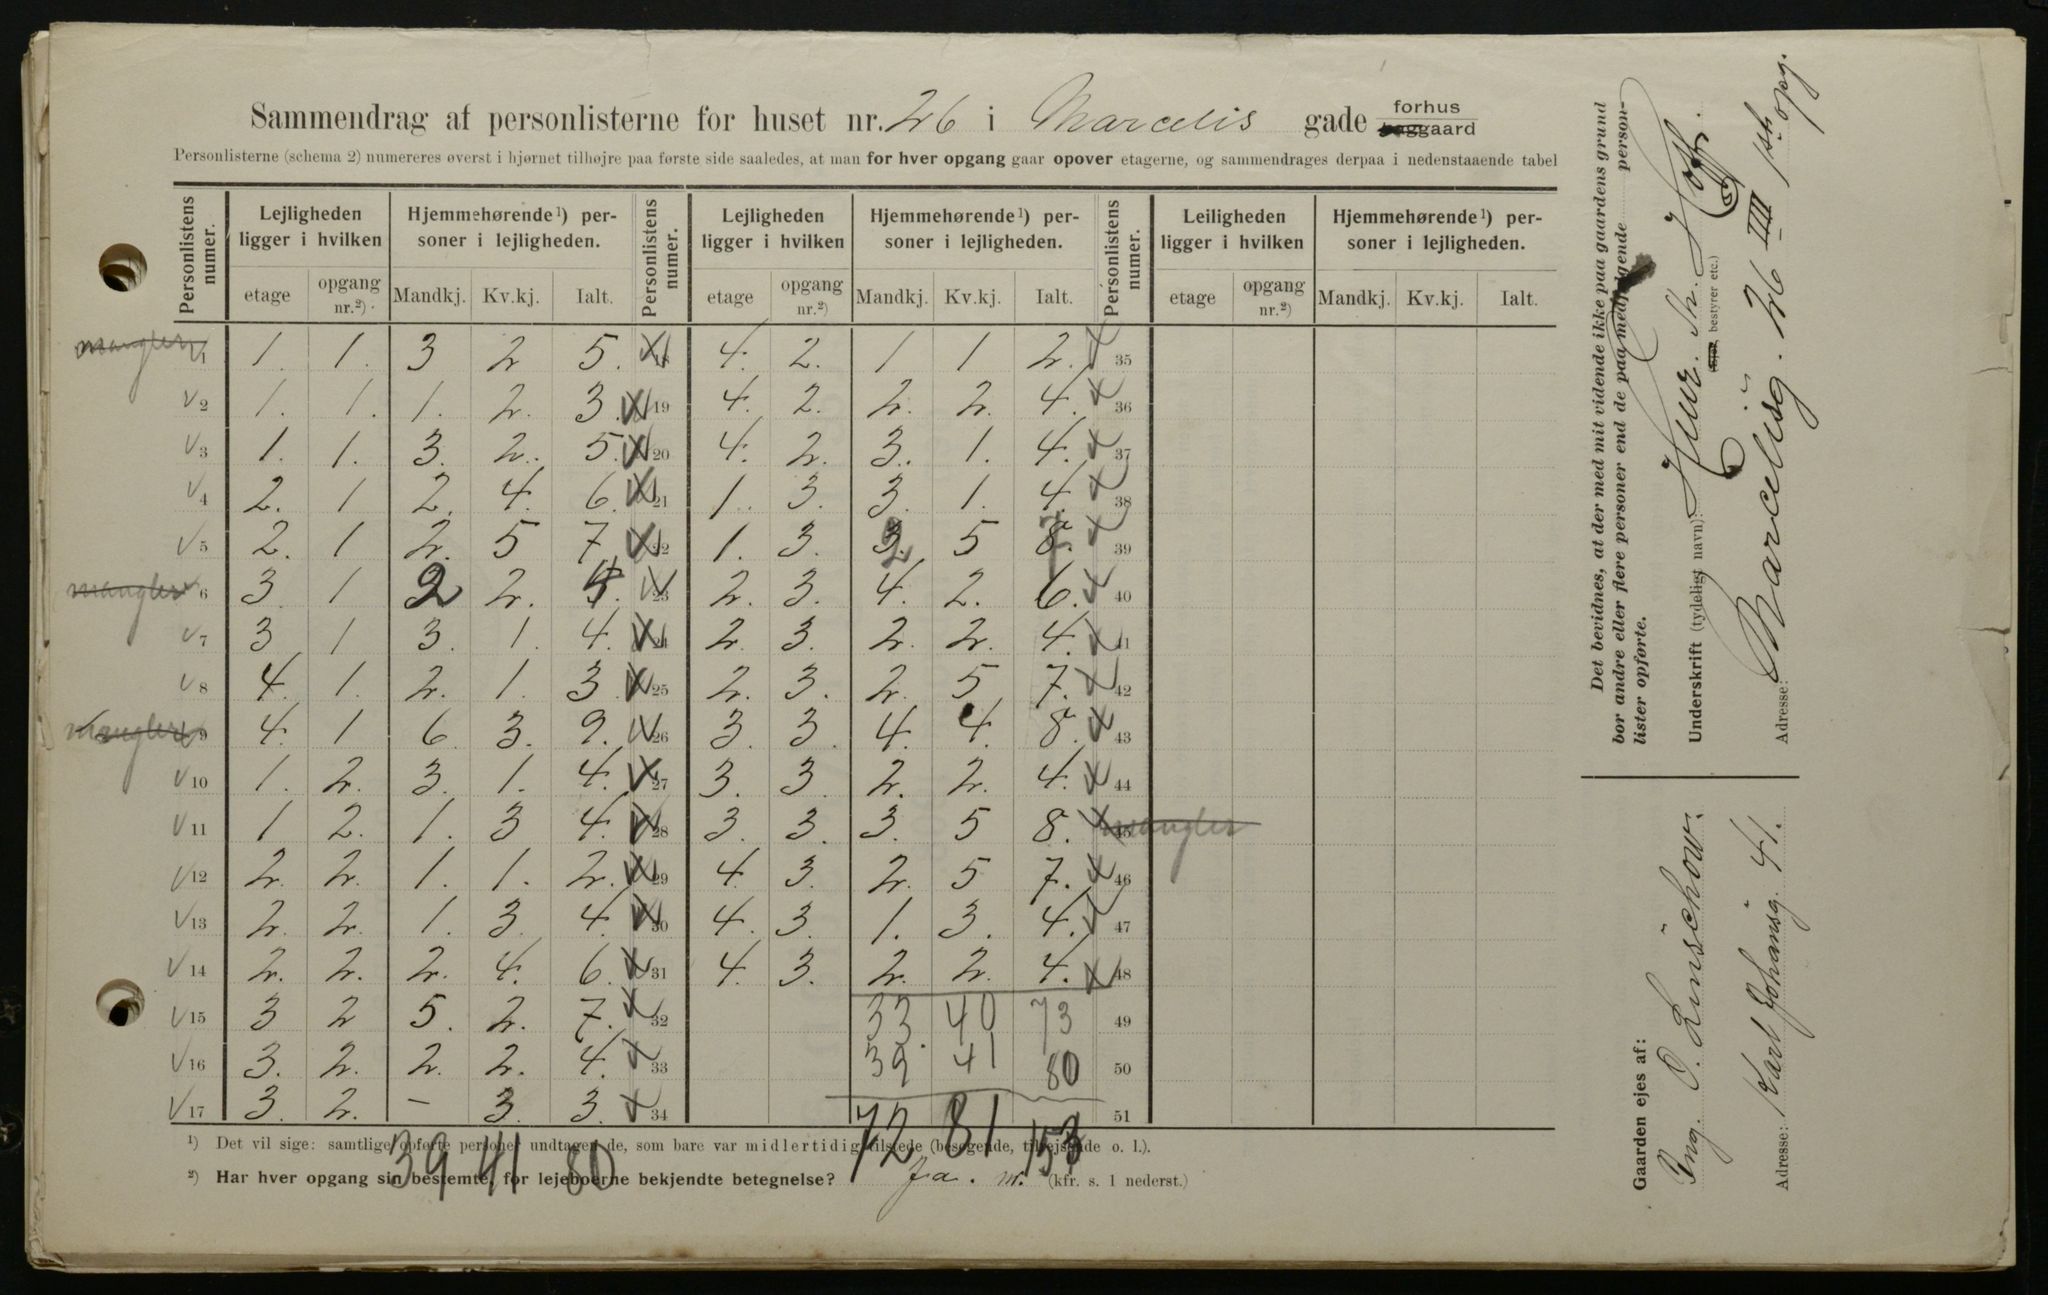 Sammendrag af personlisterne for huset nr. 26 i Marcelis gade forhus baggaard
Personlisterne (schema 2) numereres øverst i hjørnet tilhøjre paa første side saaledes, at man for hver opgang gaar opover etagerne, og sammendrages derpaa i nedenstaaende tabel
Personlistens numer. Lejligheden ligger i hvilken Hjemmehørende¹) personer i lejligheden. Personlistens numer. Lejligheden ligger i hvilken Hjemmehørende¹) personer i lejligheden. Personlistens numer. Leiligheden ligger i hvilken Hjemmehørende¹) personer i lejligheden.
etage opgang nr.²) Mandkj. Kv.kj. Ialt. etage opgang nr.²) Mandkj. Kv.kj. Ialt. etage opgang nr.²) Mandkj. Kv.kj. Ialt.
mangler 1 1. 1. 3 2 5. 18 4. 2. 1 1 2. 35
2 1. 1. 1. 2. 3. 19 4. 2. 2. 2. 4. 36
3 1. 1. 3. 2. 5. 20 4. 2. 3. 1. 4. 37
4 2. 1 2. 4. 6. 21 1. 3. 3. 1. 4. 38
5 2. 1 2. 5 7. 22 1. 3. 2 5 7 39
mangler 6 3. 1 2 2. 4. 23 2. 3. 4. 2. 6. 40
7 3 1 3. 1. 4. 24 2. 3. 2. 2. 4. 41
8 4. 1. 2. 1. 3. 25 2. 3. 2. 5 7. 42
mangler 9 4. 1 6. 3. 9. 26 3. 3. 4. 4. 8. 43
10 1. 2. 3. 1. 4. 27 3. 3 2. 2. 4. 44
11 1 2. 1. 3 4. 28 3. 3. 3. 5 8. 45 mangler
12 2. 2. 1. 1. 2. 29 4. 3. 2. 5 7. 46
13 2. 2. 1. 3. 4. 30 4. 3. 1. 3. 4. 47
14 2. 2. 2. 4. 6. 31 4. 3. 2. 2. 4. 48
15 3 2 5. 2. 7. 32 33 40 73 49
16 3. 2. 2. 2. 4. 33 39 41 80 50
17 3. 2. – 3. 3. 34 72 81 153 51
¹) Det vil sige: samtlige opførte personer undtagen de, som bare var midlertidig tilstede (besøgende, tilrejsende o. l.).
39 41 80
²) Har hver opgang sin bestemte, for lejeboerne bekjendte betegnelse? Ja. (kfr. s. 1 nederst.)
Det bevidnes, at der med mit vidende ikke paa gaardens grund
bor andre eller flere personer end de paa medfølgende person-
lister opførte.
Underskrift (tydeligt navn): Th. Hoff.
(Ejer, bestyrer etc.)
Adresse: Marcelisg. 26 IIII 1ste opg.
Gaarden ejes af:
Ing. O. Linschow.
Adresse: Karl Johansg. 41.